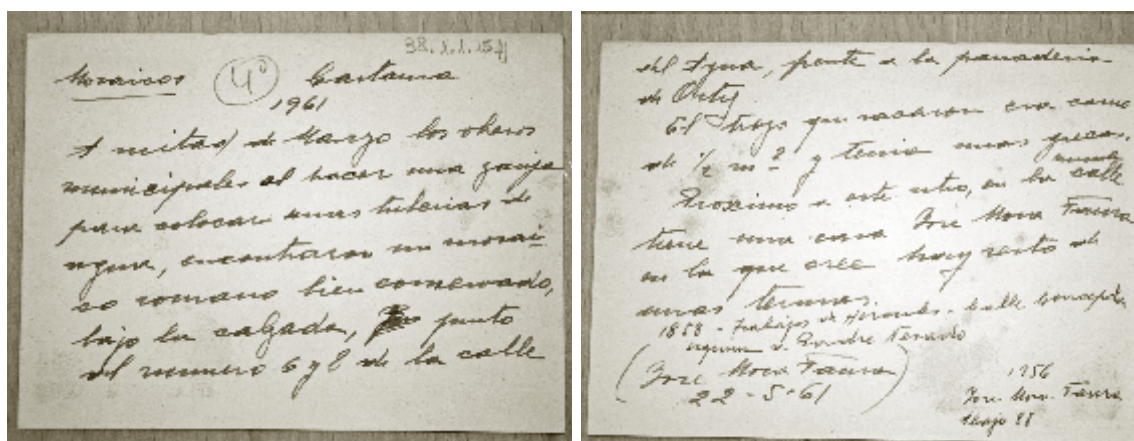 38.1.1.15
Mosaicos 4º Cartama
1961
A mitad de Marzo los obreros
municipales al hacer una zanja
para colocar unas tuberias de
agua, encontraron un mosai-
co romano bien conservado,
bajo la calzada, junto
al numero 6 y 8 de la calle
del Agua, frente a la panaderia
de Ortiz
El trozo que sacaron era como
de 1/2 m² y tenia unas grecas.
Proximo a este sitio, en la calle
tiene una casa Jose Mora Faura
en la que cree hay resto de
unas termas.
1858 - trabajos de - Calle Concepción
esquina a
(Jose Mora Faura)
22-5-61
1956
Jose Mora Faura